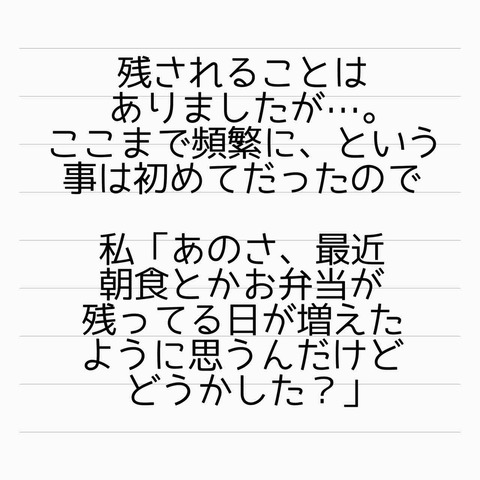 残されることは
ありましたが…。
ここまで頻繁に、という
事は初めてだったので
私「あのさ、最近
朝食とかお弁当が
残ってる日が増えた
ように思うんだけど
どうかした？」